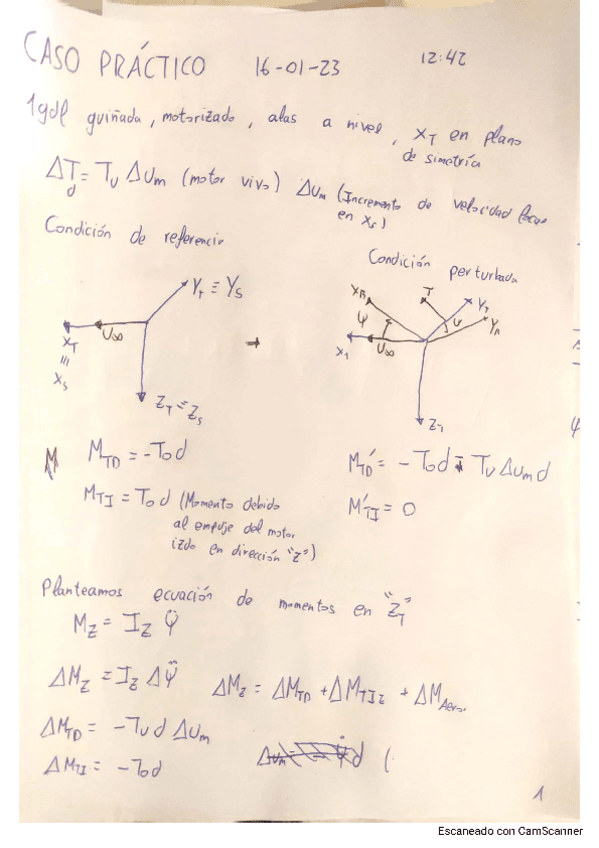 CASO PRÁCTICO 16-01-23 12:42
1gdl guiñada, motorizado, alas a nivel, X_T en plano
de simetría
ΔT_d = T_U ΔU_m (motor vivo) ΔU_m (Incremento de velocidad
en X_S)
Condición de referencia
Condición perturbada
Y_T ≡ Y_S
U∞
X_T
≡
X_S
Z_T ≡ Z_S
→
X_A
ψ
T
Y_T
ψ
Y_A
X_1
U∞
Z_1
M M_TD = -T_0 d
M'_TD = -T_0 d - T_U ΔU_m d
M_TI = T_0 d (Momento debido
al empuje del motor
izdo en dirección "Z")
M'_TI = 0
Planteamos ecuación de momentos en "Z_T"
M_Z = I_Z ψ̈
ΔM_Z = I_Z Δψ̈ ΔM_Z = ΔM_TD + ΔM_TIZ + ΔM_Aero.
ΔM_TD = -T_U d ΔU_m
ΔM_TI = -T_0 d
1
Escaneado con CamScanner